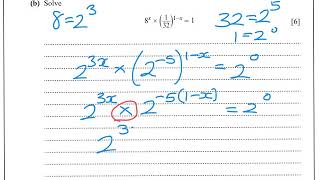 (b) Solve
8 = 2³
8ˣ × (1/32)¹⁻ˣ = 1
[6]
32 = 2⁵
1 = 2⁰
2³ˣ × (2⁻⁵)¹⁻ˣ = 2⁰
2³ˣ × 2⁻⁵⁽¹⁻ˣ⁾ = 2⁰
2³